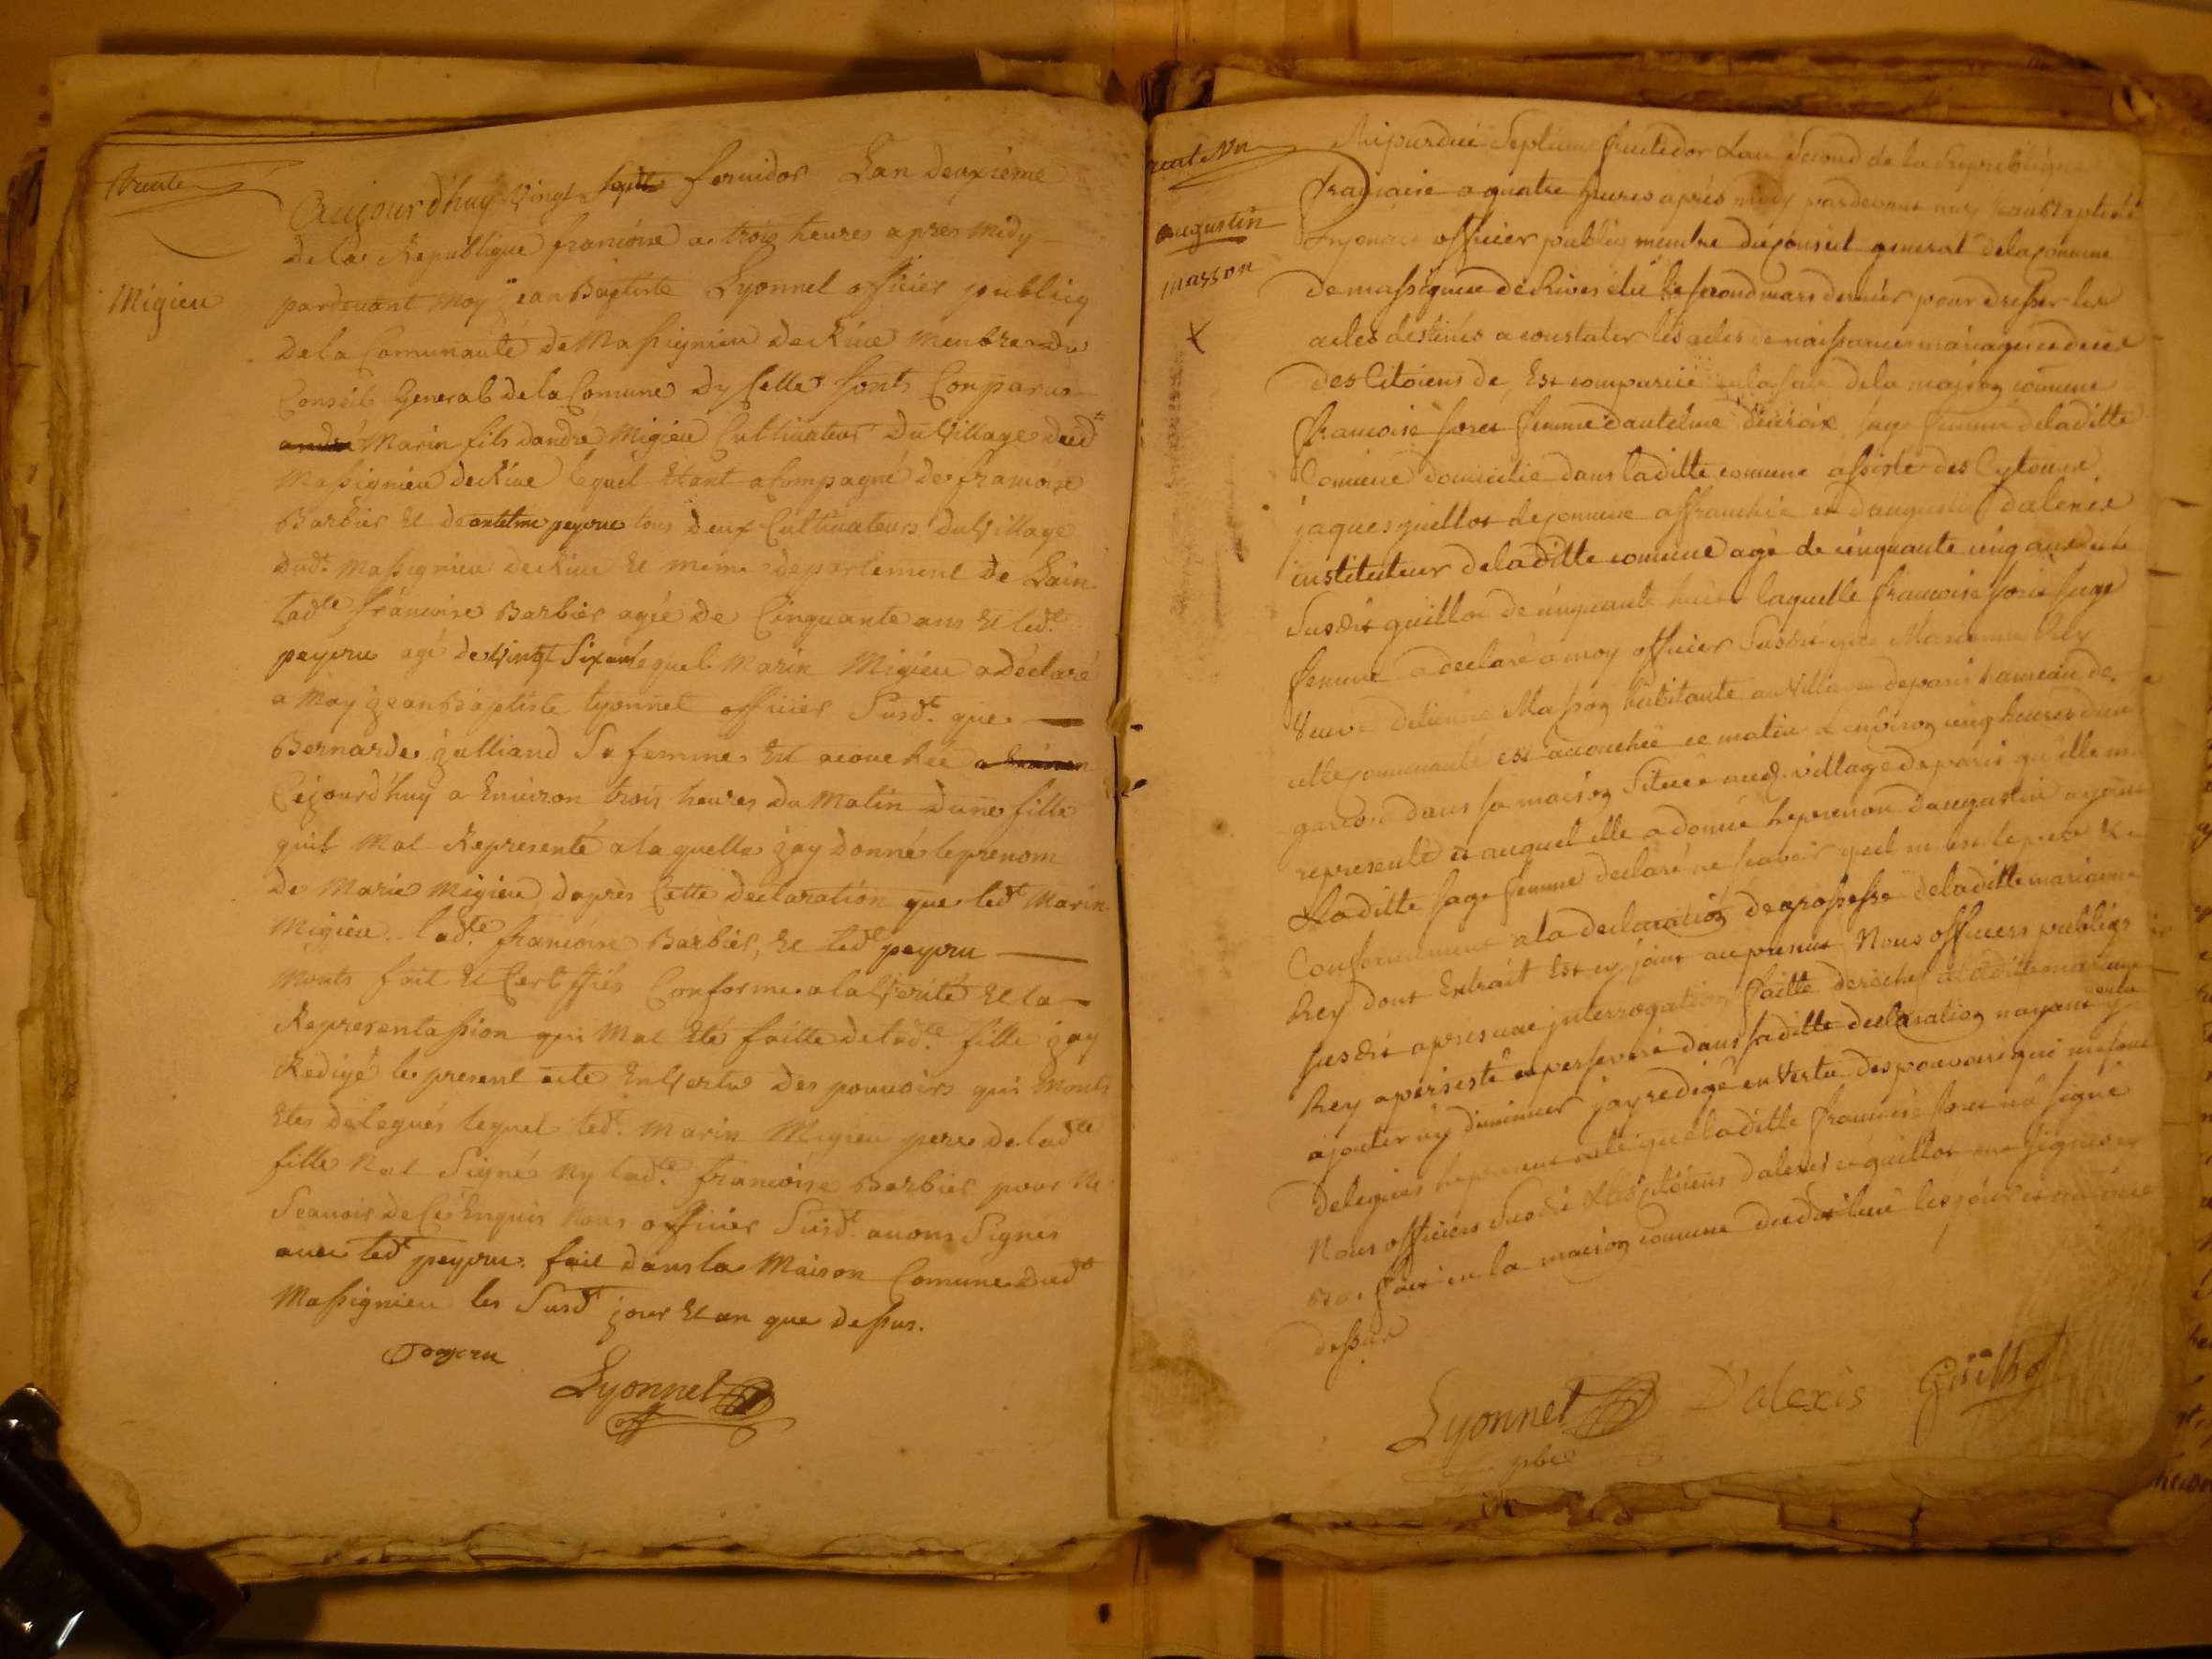 trente
Migieu
Aujourd'huy vingt septe fervidor Lan deuxiéme
de la Republique francoise a trois heures aprés midy
pardevant moy Jean Baptiste Lyonnel officier publicq
de la Comunauté de Massignieu de Rive menbre du
Conseil General de la Comune dycelle sonts Comparus
andré Marin fils dandré Migieu Cultivateur du village dudt
Massignieu de Rive lequel etant acompagné de francoise
Barbier et de antelme peyru tous deux Cultivateurs du village
dudt Massignieu de Rive et méme departement de Lain
ladte francoise Barbier agée de Cinquante ans et ledt
peyru agé de vingt Six ans lequel Marin Migieu a déclaré
a moy jean Baptiste lyonnel officier Susdt que
Bernarde julliand Sa femme est acouchée a Environ
Cejourd'huy a Environ trois heures du matin dune fille
quil mat Representé a laquelle jay donné le prenom
de Marie Migieu daprès Cette declaration que ledt Marin
Migieu ladte francoise Barbier, et ledt peyru
monts fait et Certiffiés Conforme a la verité et la
Representassion qui mat été faitte de ladte fille jay
Redigé le present acte En vertu des pouvoirs qui monts
étes delegués lequel ledt Marin Migieu pere de ladte
fille nat Signé ny ladte francoise Barbier pour ne
Scavoir de Ce Enquis nous officier Susdt avons Signés
avec ledt peyru. fait dans la Maison Comune dudt
Massignieu les Susdt jour et an que dessus.
peyru
Lyonnel
off
trent un
augustin
masson
X
Aujourdui Septieme fructidor Lan Second de la Republique
francaise a quatre heures aprés midy pardevant moy Jean Baptiste
Lyonnet officier publicq membre du conseil general de la comune
de massignieu de Rives élu le second mars dernier pour dresser les
actes destinés a constater les actes de naissances mariages et deces
des Citoiens de, Est comparüe en la sale de la maison comune
francoise foret femme dantelme decroix sage femme de la ditte
Comune domicilie dans la ditte comune assisté des Cytoiens
jaques guillot de comune affranchie et daugustin dalexis
instituteur de la ditte comune agé de cinquante cinq ans et le
Susdit guillot de cinquante huit laquelle francoise foret sage
femme a declaré a moy officier Susdit que Marianne Rey
veuve detienne Masson habitante au village de paris hameau de
cette communauté est accouchée ce matin a environ cinq heures dun
garcon dans sa maison Située audt village de paris quelle ma
representé et auquel elle a donné le prenom daugustin ayant
Laditte sage femme declaré ne scavoir quel en est le pere et
Conformement a la declaration de grossesse de la ditte marianne
Rey dont Extrait Est cy joint au present Nous officiers publiqs
susdit apres une jnterrogation faitte derechef a la ditte marianne
Rey a persisté et perseveré dans sa ditte declaration nayant voulu y
ajouter ny diminuer jay redigé en vertu des pouvoirs qui me sont
delegués le present acte que la ditte francoise foret na signé
Nous officiers susdit et les citoiens dalexis et guillot ont signés
bas fait en la maison comune dudit lieu les jour et an que
dessus
Lyonnet D'alexis Guilliot
pbc